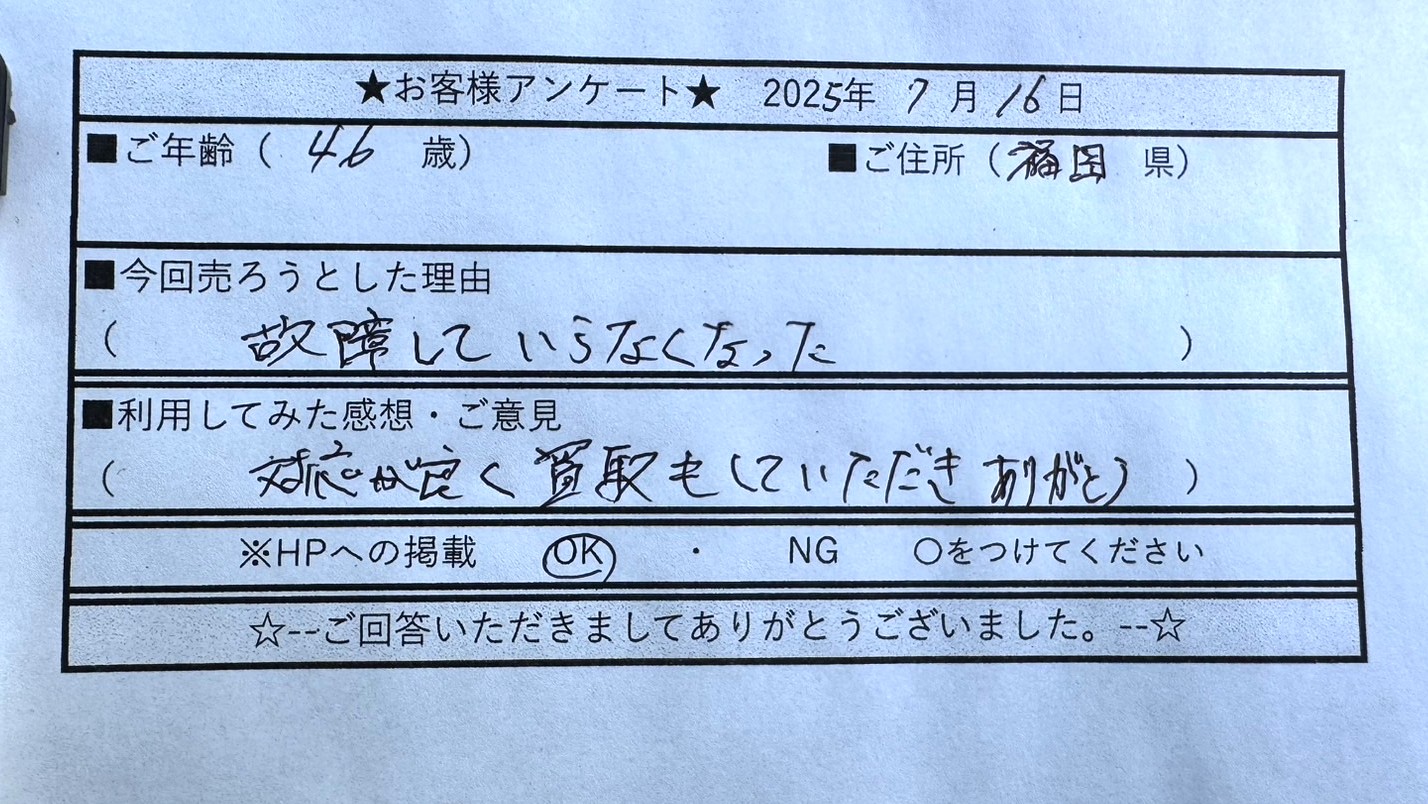 ★お客様アンケート★ 2025年 7月 16日
■ご年齢（ 46 歳） ■ご住所（福岡 県）
■今回売ろうとした理由
（ 故障していらなくなった ）
■利用してみた感想・ご意見
（ 対応が良く買取もしていただきありがとう ）
※HPへの掲載 OK ・ NG ○をつけてください
☆--ご回答いただきましてありがとうございました。--☆